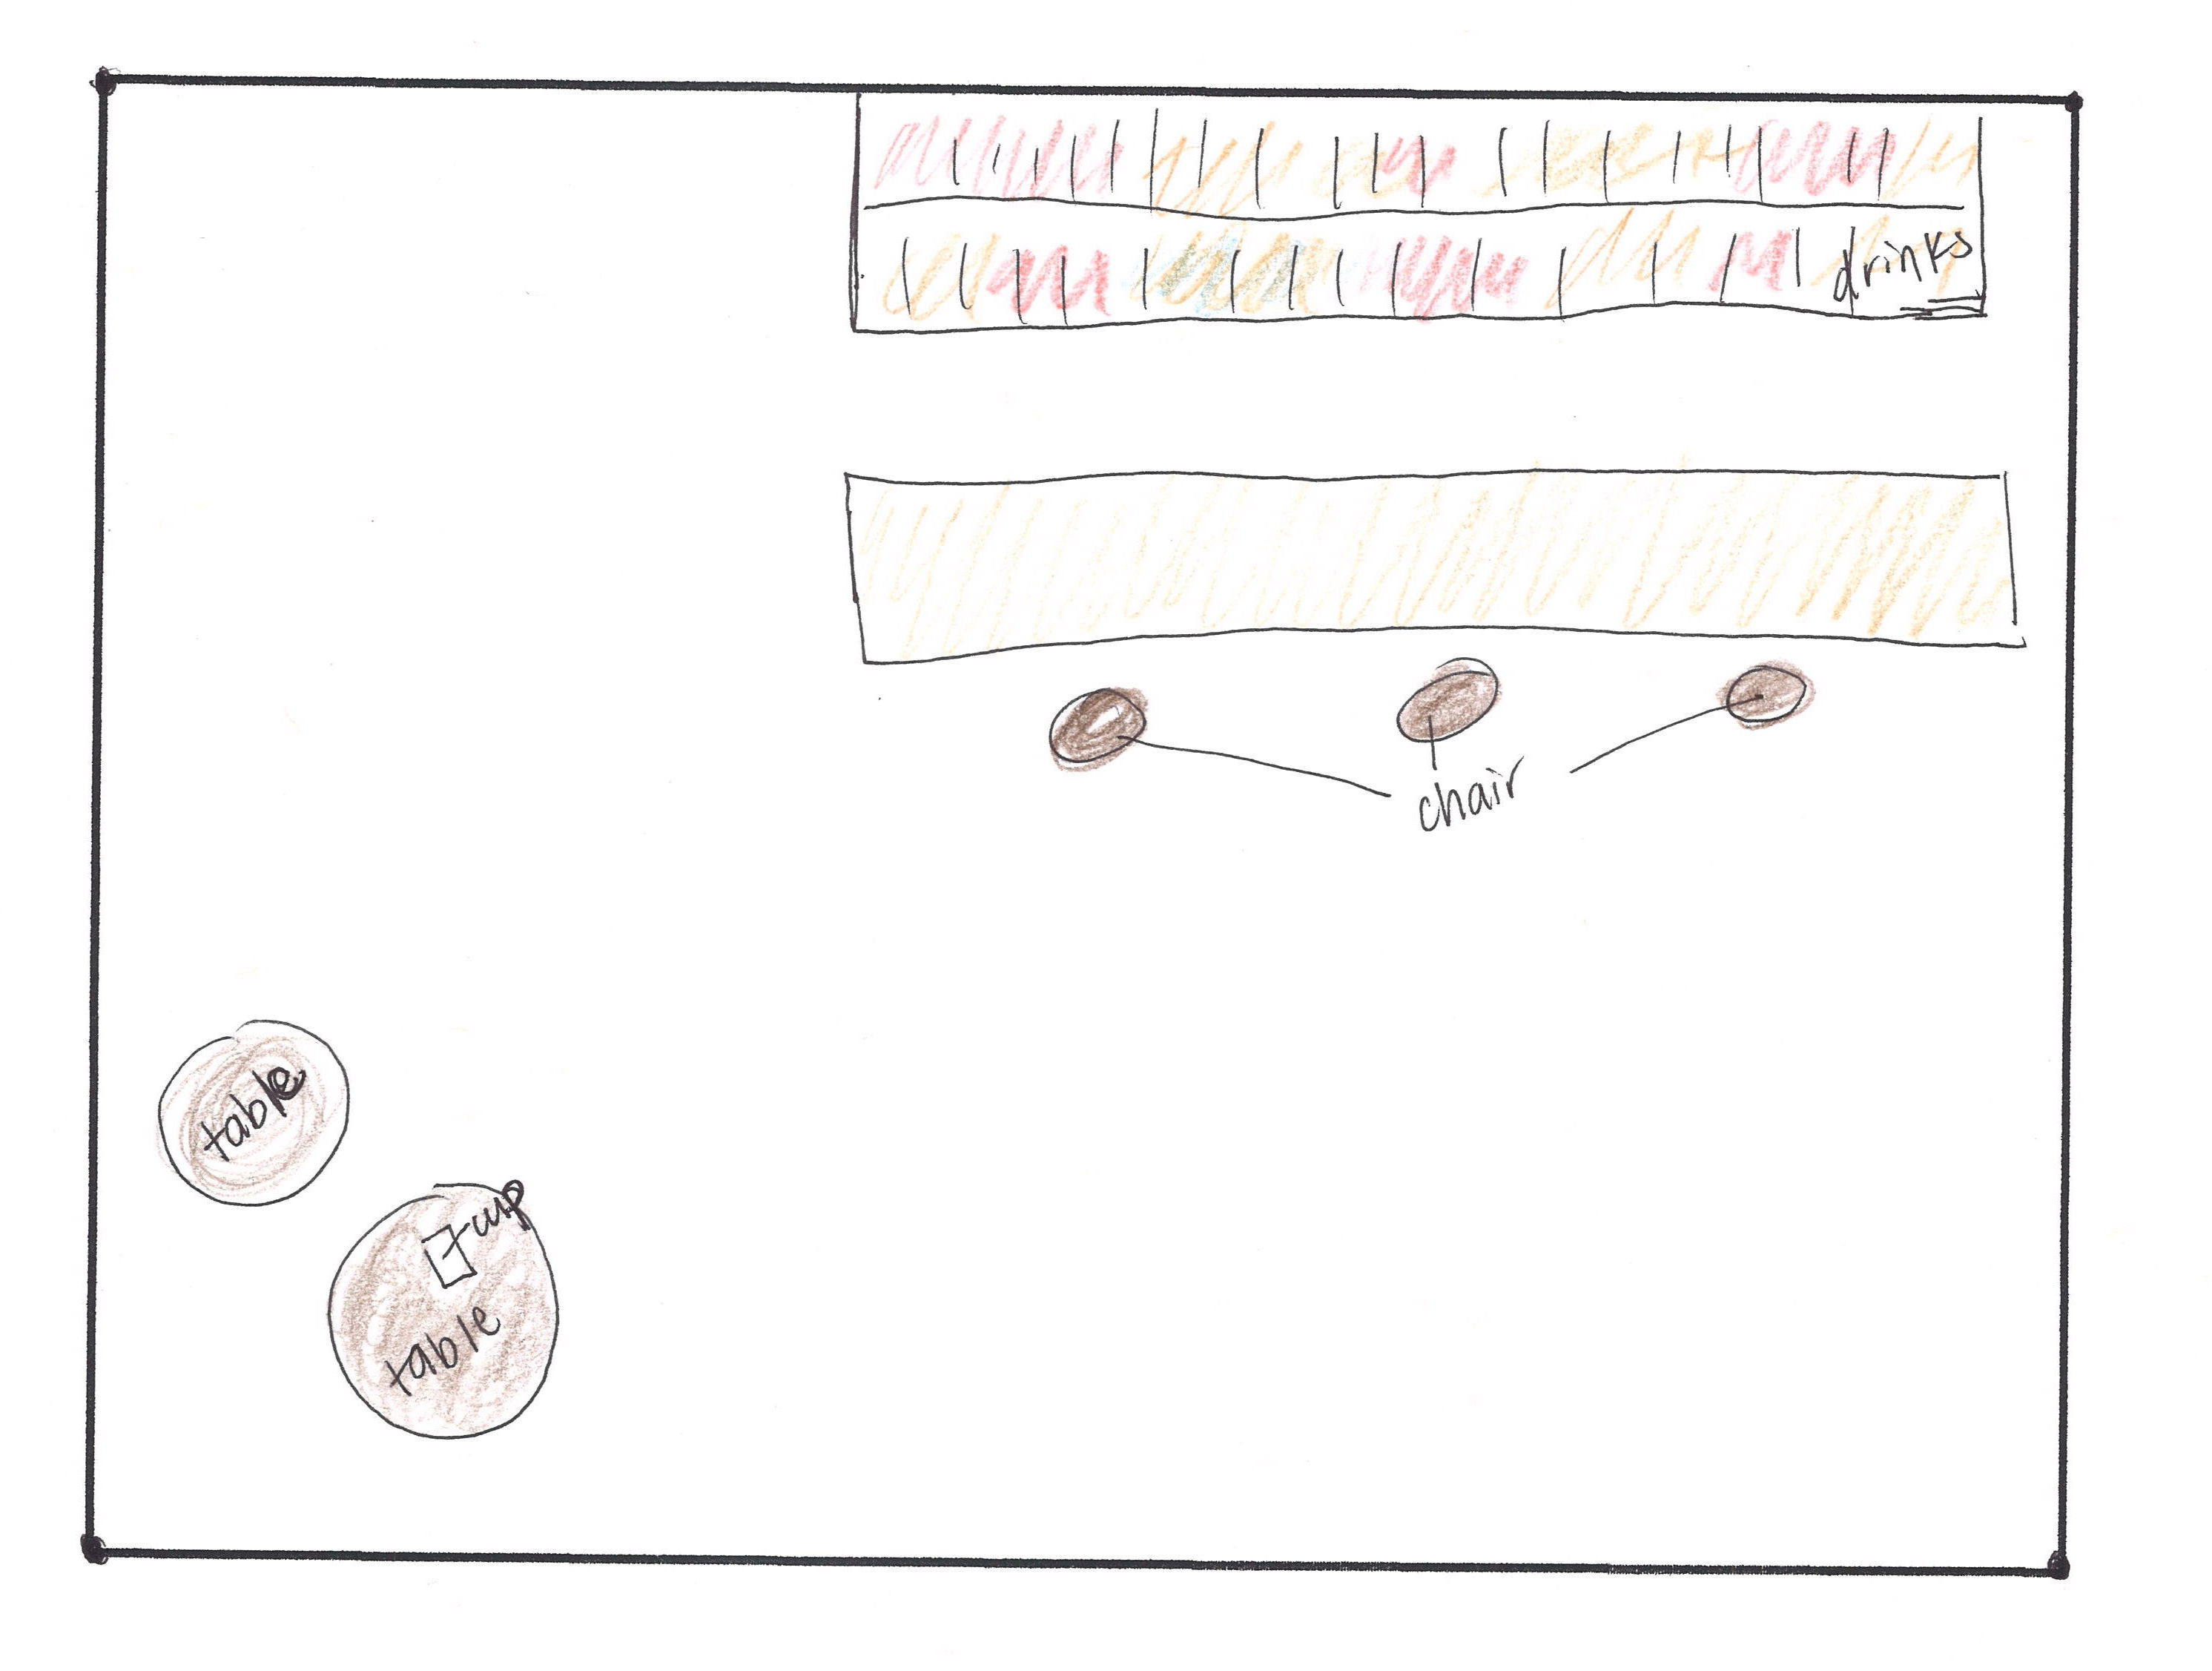 drinks
chair
table
cup
table